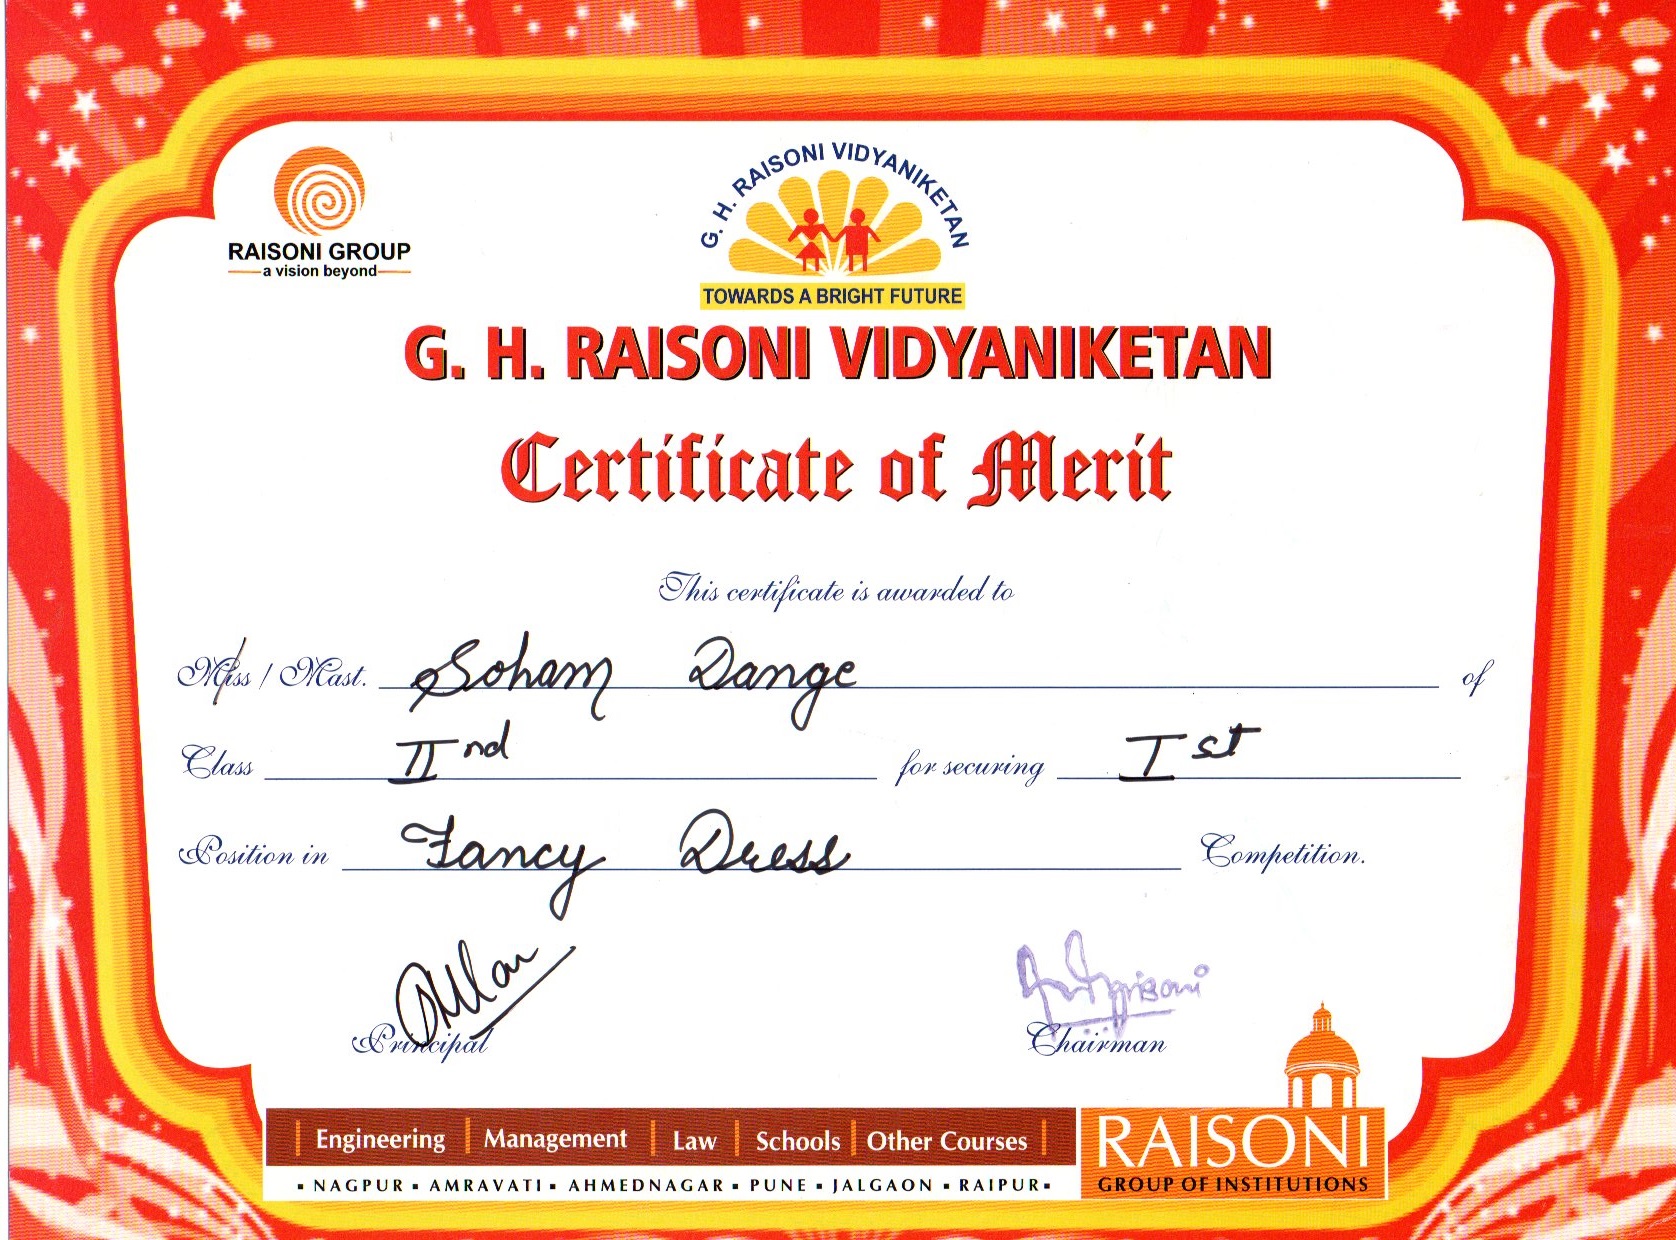 RAISONI GROUP
a vision beyond
G. H. RAISONI VIDYANIKETAN
TOWARDS A BRIGHT FUTURE
G. H. RAISONI VIDYANIKETAN
Certificate of Merit
This certificate is awarded to
Miss / Mast. Soham Dange of
Class IInd for securing Ist
Position in Fancy Dress Competition.
Principal
Chairman
| Engineering | Management | Law | Schools | Other Courses |
▪ NAGPUR ▪ AMRAVATI ▪ AHMEDNAGAR ▪ PUNE ▪ JALGAON ▪ RAIPUR ▪
RAISONI
GROUP OF INSTITUTIONS